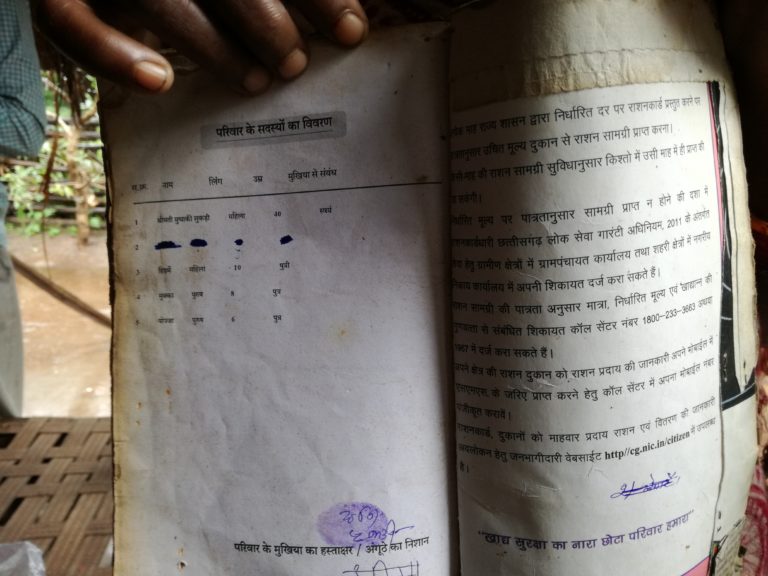 परिवार के सदस्यों का विवरण
स.क्र. नाम लिंग उम्र मुखिया से संबंध
1 श्रीमती मुचाकी सुकड़ी महिला 40 स्वयं
2
3 महिला 10 पुत्री
4 मुक्का पुरुष 8 पुत्र
5 पुरुष 6 पुत्र
परिवार के मुखिया का हस्ताक्षर / अंगूठे का निशान
माह राज्य शासन द्वारा निर्धारित दर पर राशनकार्ड प्रस्तुत करने पर
पात्रतानुसार उचित मूल्य दुकान से राशन सामग्री प्राप्त करना।
माह की राशन सामग्री सुविधानुसार किश्तो में उसी माह में ही प्राप्त की
निर्धारित मूल्य पर पात्रतानुसार सामग्री प्राप्त न होने की दशा में
राशनकार्डधारी छत्तीसगढ़ लोक सेवा गारंटी अधिनियम, 2011 के अंतर्गत
हेतु ग्रामीण क्षेत्रों में ग्रामपंचायत कार्यालय तथा शहरी क्षेत्रों में नगरीय
निकाय कार्यालय में अपनी शिकायत दर्ज करा सकते हैं।
राशन सामग्री की पात्रता अनुसार मात्रा, निर्धारित मूल्य एवं खाद्यान्न की
गुणवत्ता से संबंधित शिकायत कॉल सेंटर नंबर 1800-233-3663 अथवा
1967 में दर्ज करा सकते हैं।
अपने क्षेत्र की राशन दुकान को राशन प्रदाय की जानकारी अपने मोबाईल में
एसएमएस के जरिए प्राप्त करने हेतु कॉल सेंटर में अपना मोबाईल नंबर
पंजीकृत करावें।
राशनकार्ड, दुकानों को माहवार प्रदाय राशन एवं वितरण की जानकारी
अवलोकन हेतु जनभागीदारी वेबसाईट http//cg.nic.in/citizen में उपलब्ध
है।
"खाद्य सुरक्षा का नारा छोटा परिवार हमारा"